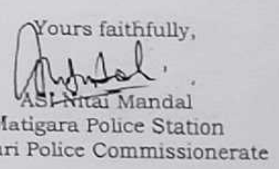 Yours faithfully,
ASI Nitai Mandal
Matigara Police Station
Police Commissionerate